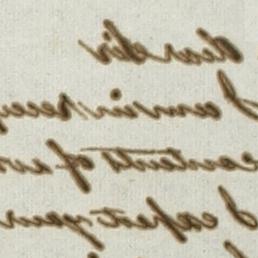 dear Sir
I am in
contents of
I expect your